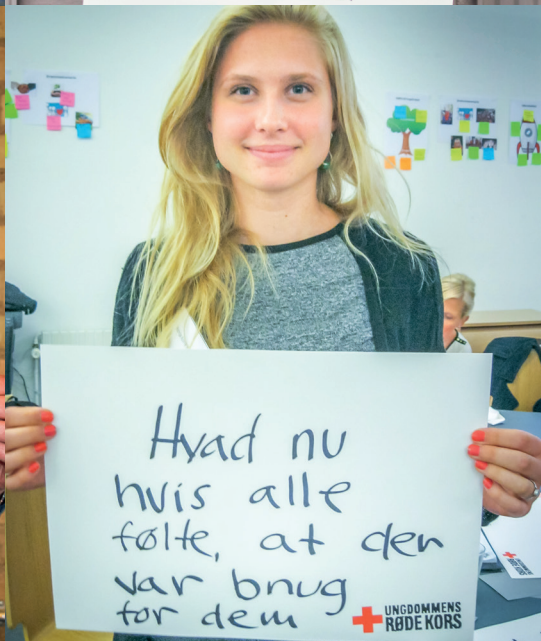 Hvad nu
hvis alle
følte, at der
var brug
for dem
UNGDOMMENS
RØDE KORS